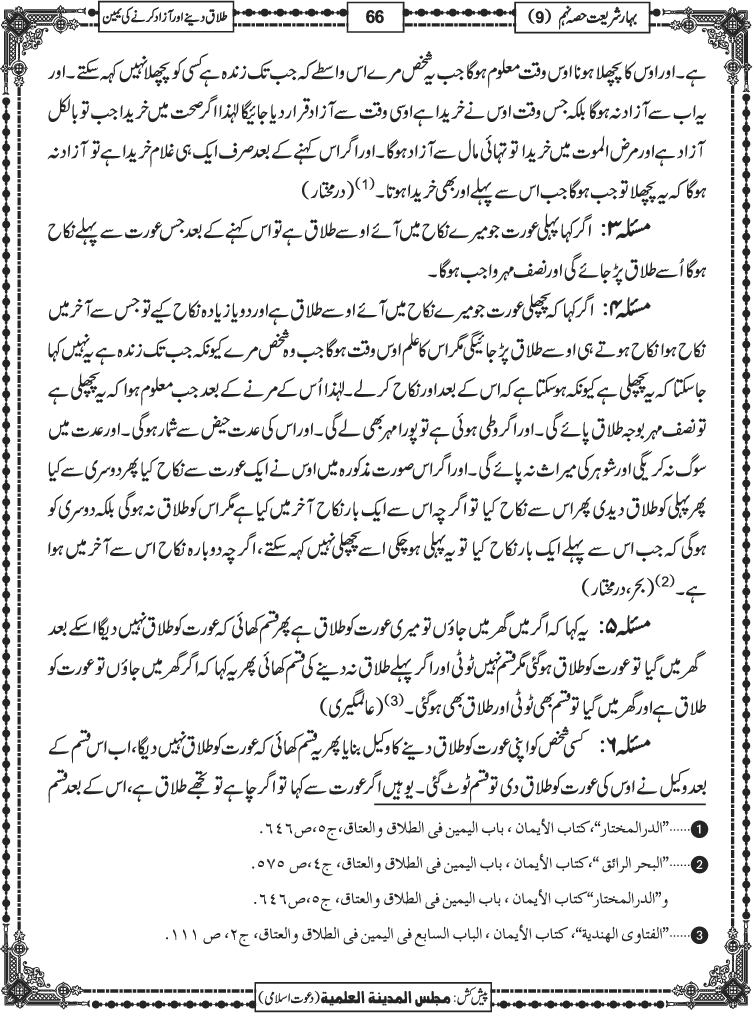 بہار شریعت حصہ نہم (9)
66
طلاق دینے اور آزاد کرنے کی یمین
ہے۔ اور اوس کا پچھلا ہونا اوس وقت معلوم ہوگا جب یہ شخص مرے اس واسطے کہ جب تک زندہ ہے کسی کو پچھلا نہیں کہہ سکتے۔ اور
یہ اب سے آزاد نہ ہوگا بلکہ جس وقت اوس نے خریدا ہے اوسی وقت سے آزاد قرار دیا جائیگا لہٰذا اگر صحت میں خریدا جب تو بالکل
آزاد ہے اور مرض الموت میں خریدا تو تہائی مال سے آزاد ہوگا۔ اور اگر اس کہنے کے بعد صرف ایک ہی غلام خریدا ہے تو آزاد نہ
ہوگا کہ یہ پچھلا تو جب ہوگا جب اس سے پہلے اور بھی خریدا ہوتا۔ (1) (درمختار)
مسئلہ ۳: اگر کہا پہلی عورت جو میرے نکاح میں آئے اوسے طلاق ہے تو اس کہنے کے بعد جس عورت سے پہلے نکاح
ہوگا اُسے طلاق پڑ جائے گی اور نصف مہر واجب ہوگا۔
مسئلہ ۴: اگر کہا کہ پچھلی عورت جو میرے نکاح میں آئے اوسے طلاق ہے اور دو یا زیادہ نکاح کیے تو جس سے آخر میں
نکاح ہوا نکاح ہوتے ہی اوسے طلاق پڑ جائیگی مگر اس کا علم اوس وقت ہوگا جب وہ شخص مرے کیونکہ جب تک زندہ ہے یہ نہیں کہا
جاسکتا کہ یہ پچھلی ہے کیونکہ ہوسکتا ہے کہ اس کے بعد اور نکاح کرلے۔ لہٰذا اُس کے مرنے کے بعد جب معلوم ہوا کہ یہ پچھلی ہے
تو نصف مہر بوجہ طلاق پائے گی۔ اور اگر وطی ہوئی ہے تو پورا مہر بھی لے گی۔ اور اس کی عدت حیض سے شمار ہوگی۔ اور عدت میں
سوگ نہ کریگی اور شوہر کی میراث نہ پائے گی۔ اور اگر اس صورت مذکورہ میں اوس نے ایک عورت سے نکاح کیا پھر دوسری سے کیا
پھر پہلی کو طلاق دیدی پھر اس سے نکاح کیا تو اگر چہ اس سے ایک بار نکاح آخر میں کیا ہے مگر اس کو طلاق نہ ہوگی بلکہ دوسری کو
ہوگی کہ جب اس سے پہلے ایک بار نکاح کیا تو یہ پہلی ہوچکی اسے پچھلی نہیں کہہ سکتے، اگر چہ دوبارہ نکاح اس سے آخر میں ہوا
ہے۔ (2) (بحر، درمختار)
مسئلہ ۵: یہ کہا کہ اگر میں گھر میں جاؤں تو میری عورت کو طلاق ہے پھر قسم کھائی کہ عورت کو طلاق نہیں دیگا اسکے بعد
گھر میں گیا تو عورت کو طلاق ہوگئی مگر قسم نہیں ٹوٹی اور اگر پہلے طلاق نہ دینے کی قسم کھائی پھر یہ کہا کہ اگر گھر میں جاؤں تو عورت کو
طلاق ہے اور گھر میں گیا تو قسم بھی ٹوٹی اور طلاق بھی ہوگئی۔ (3) (عالمگیری)
مسئلہ ۶: کسی شخص کو اپنی عورت کو طلاق دینے کا وکیل بنایا پھر یہ قسم کھائی کہ عورت کو طلاق نہیں دیگا، اب اس قسم کے
بعد وکیل نے اوس کی عورت کو طلاق دی تو قسم ٹوٹ گئی۔ یوہیں اگر عورت سے کہا تو اگر چاہے تو تجھے طلاق ہے، اس کے بعد قسم
1 ......"الدرالمختار"، کتاب الأیمان ، باب الیمین فی الطلاق والعتاق، ج۵، ص۶۴۶.
2 ......"البحر الرائق "، کتاب الأیمان ، باب الیمین فی الطلاق والعتاق، ج۴، ص ۵۷۵.
و"الدرالمختار"کتاب الأیمان ، باب الیمین فی الطلاق والعتاق، ج۵، ص۶۴۶.
3 ......"الفتاوی الھندیة"، کتاب الأیمان ، الباب السابع فی الیمین فی الطلاق والعتاق، ج۲، ص ۱۱۱.
پیش کش: مجلس المدینة العلمیة (دعوت اسلامی)